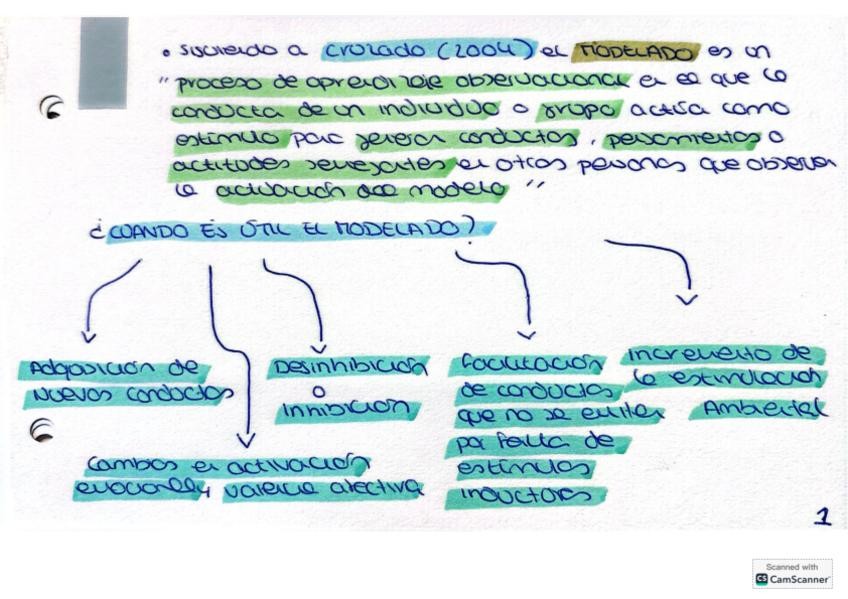 • siguiendo a Cruzado (2004) el MODELADO es un
" proceso de aprendizaje observacional en el que la
conducta de un individuo o grupo actúa como
estímulo para generar conductas, pensamientos o
actitudes semejantes en otras personas que observan
la actuación del modelo "
¿CUANDO ES ÚTIL EL MODELADO?
Adquisición de
Nuevas conductas
Cambios en activación
emocional y valencia afectiva
Desinhibición
o
Inhibición
Facilitación
de conductas
que no se emiten
por falta de
estímulos
inductores
Incremento de
la estimulación
Ambiental
1
Scanned with
CS CamScanner